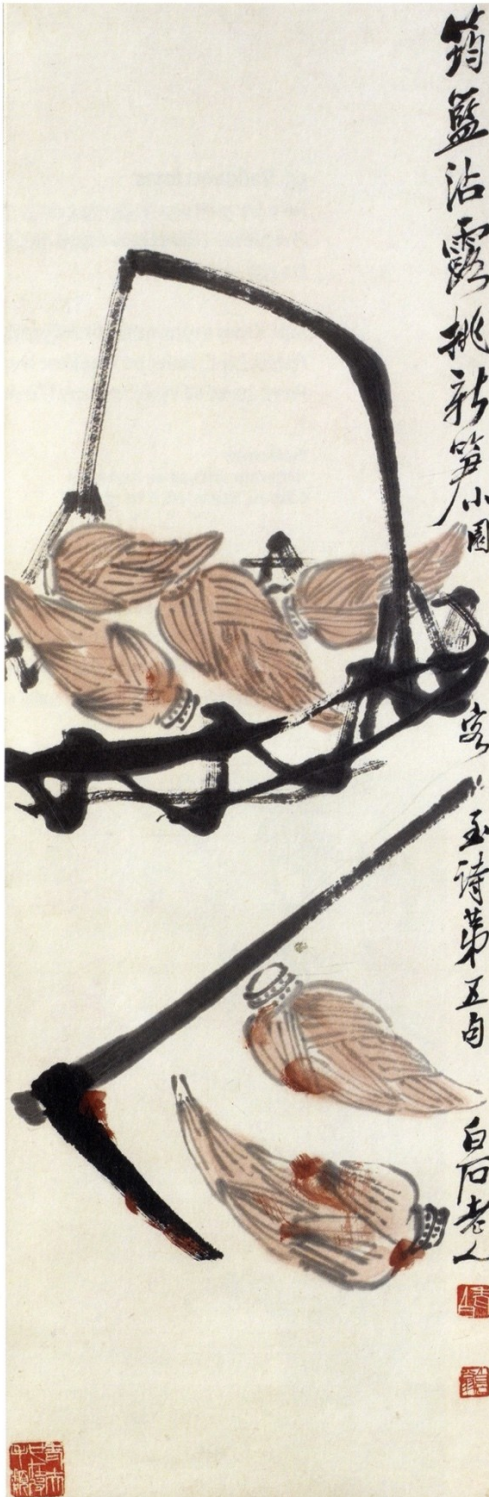 筠籃沾露挑新笋小園
客至詩第五句
白石老人